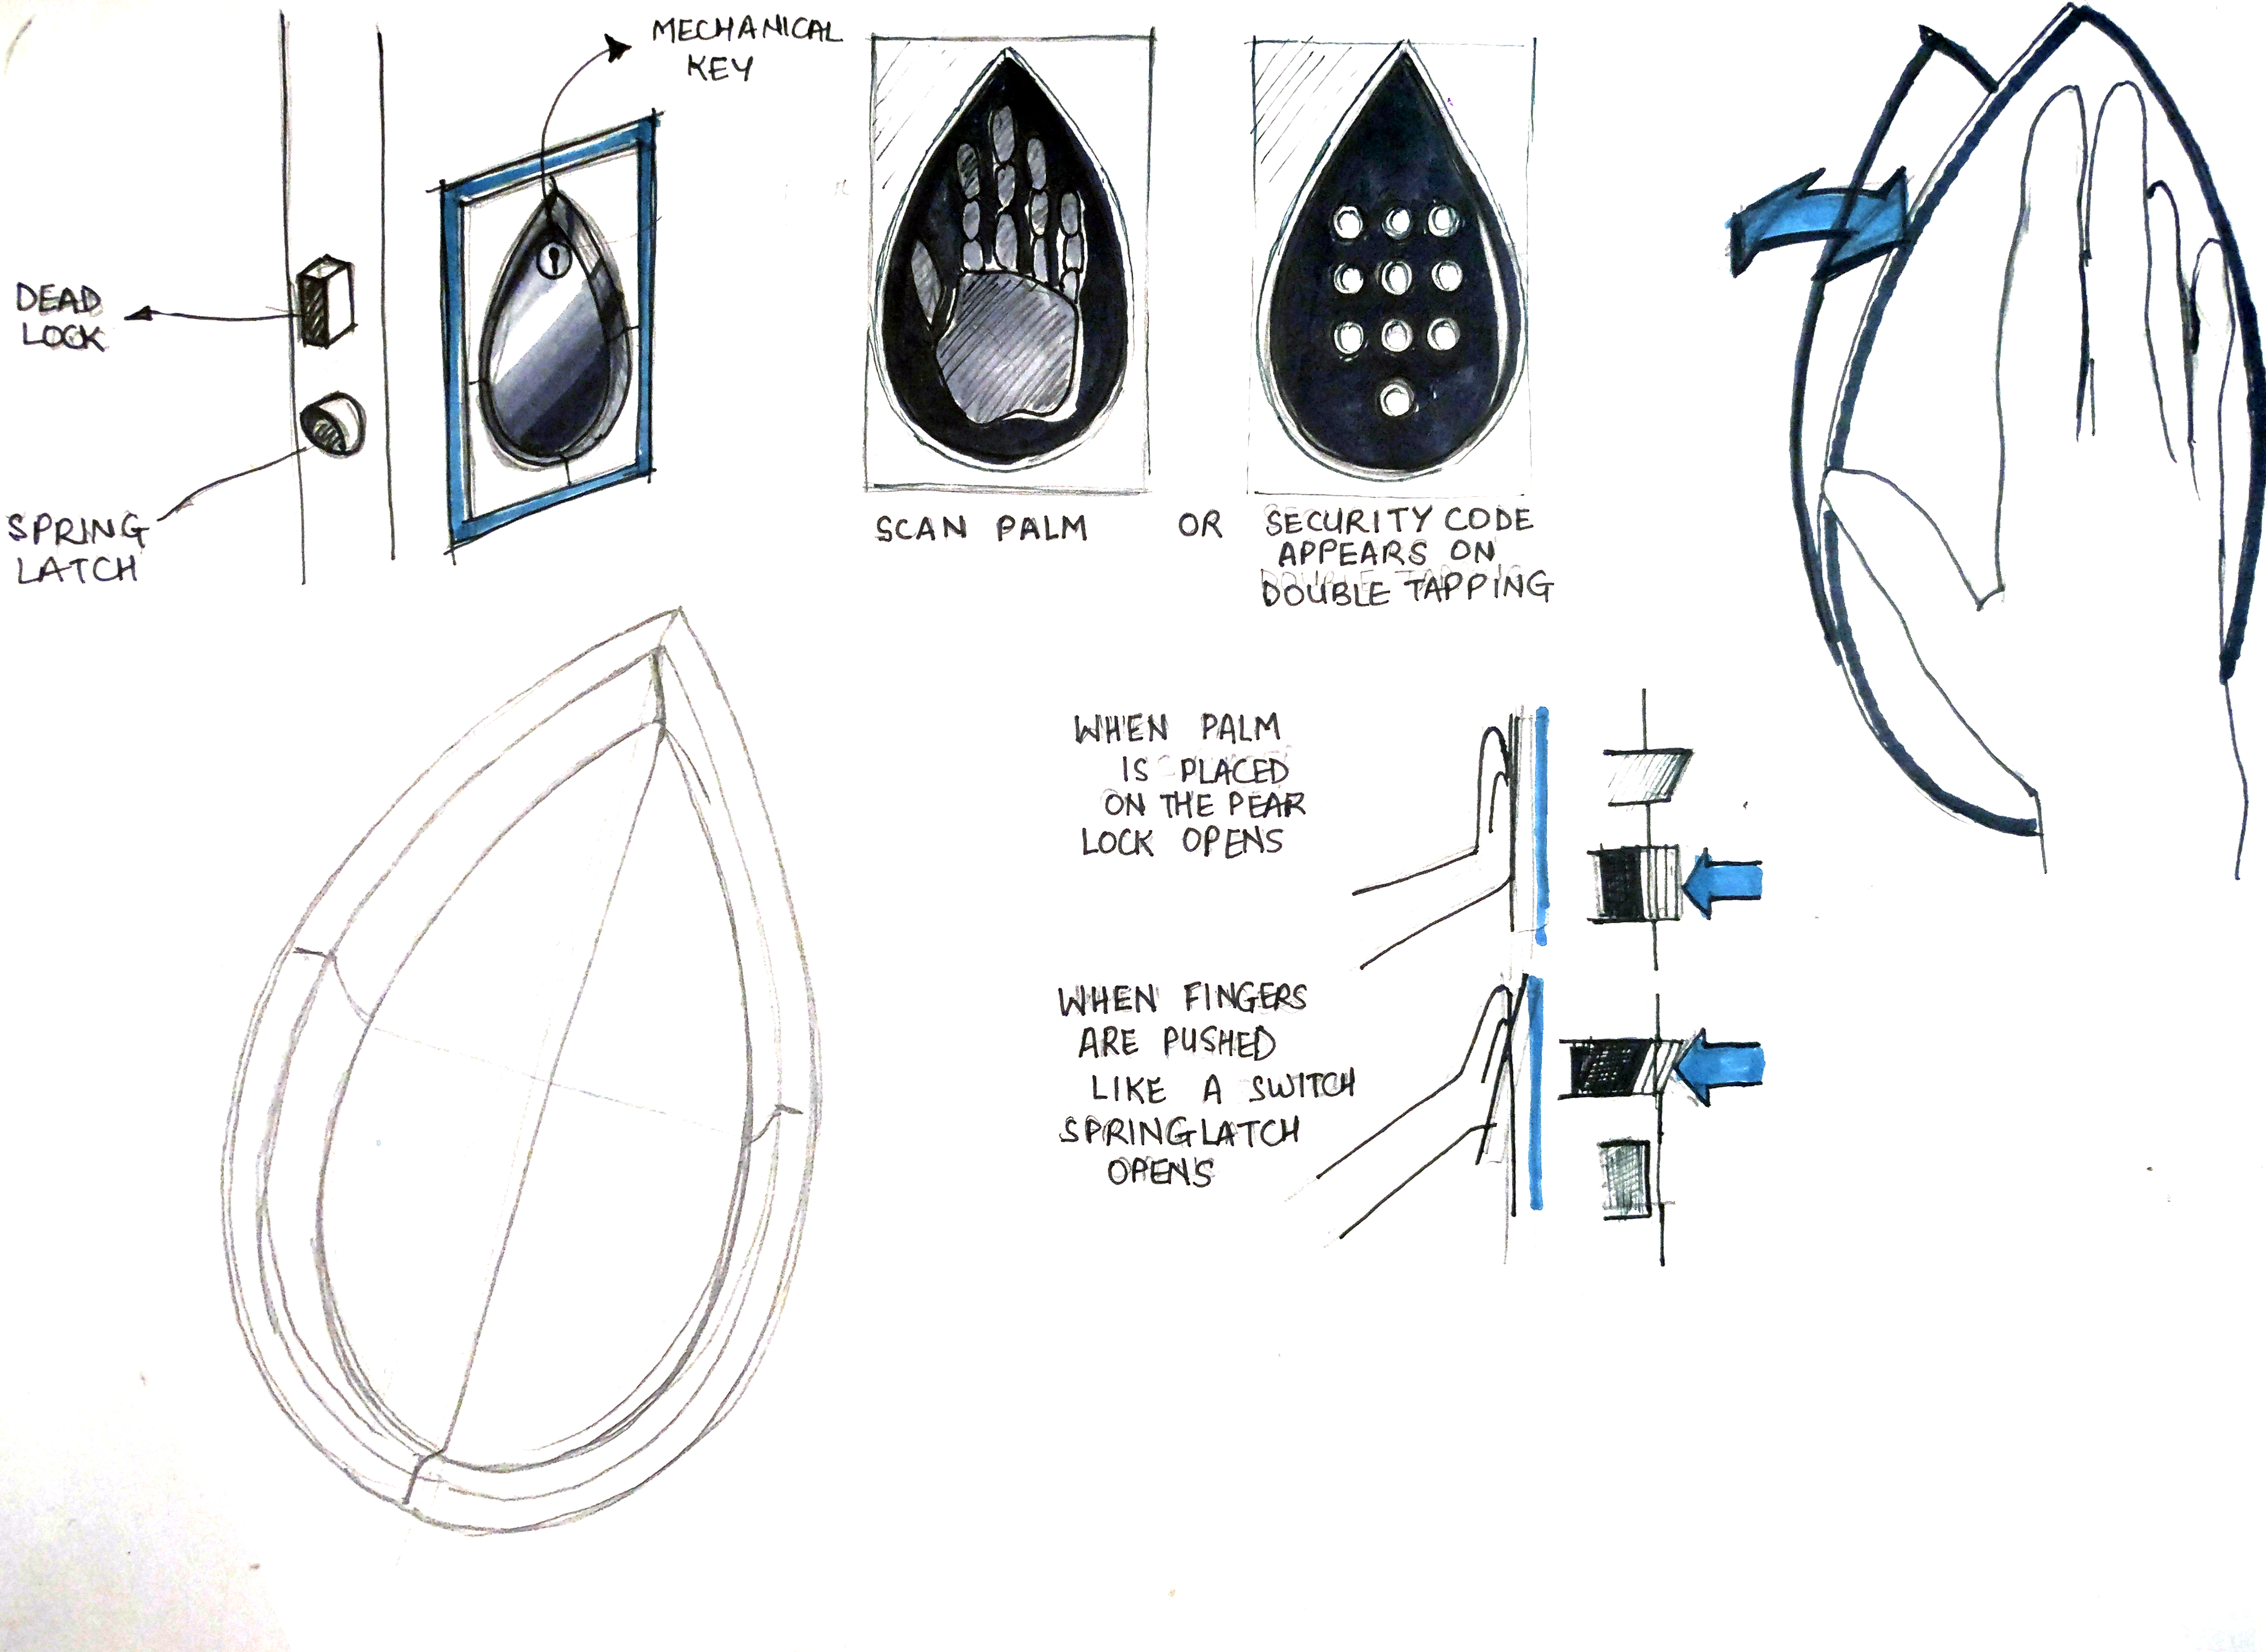 MECHANICAL
KEY
DEAD
LOCK
SPRING
LATCH
SCAN PALM OR SECURITY CODE
APPEARS ON
DOUBLE TAPPING
WHEN PALM
IS PLACED
ON THE PEAR
LOCK OPENS
WHEN FINGERS
ARE PUSHED
LIKE A SWITCH
SPRING LATCH
OPENS